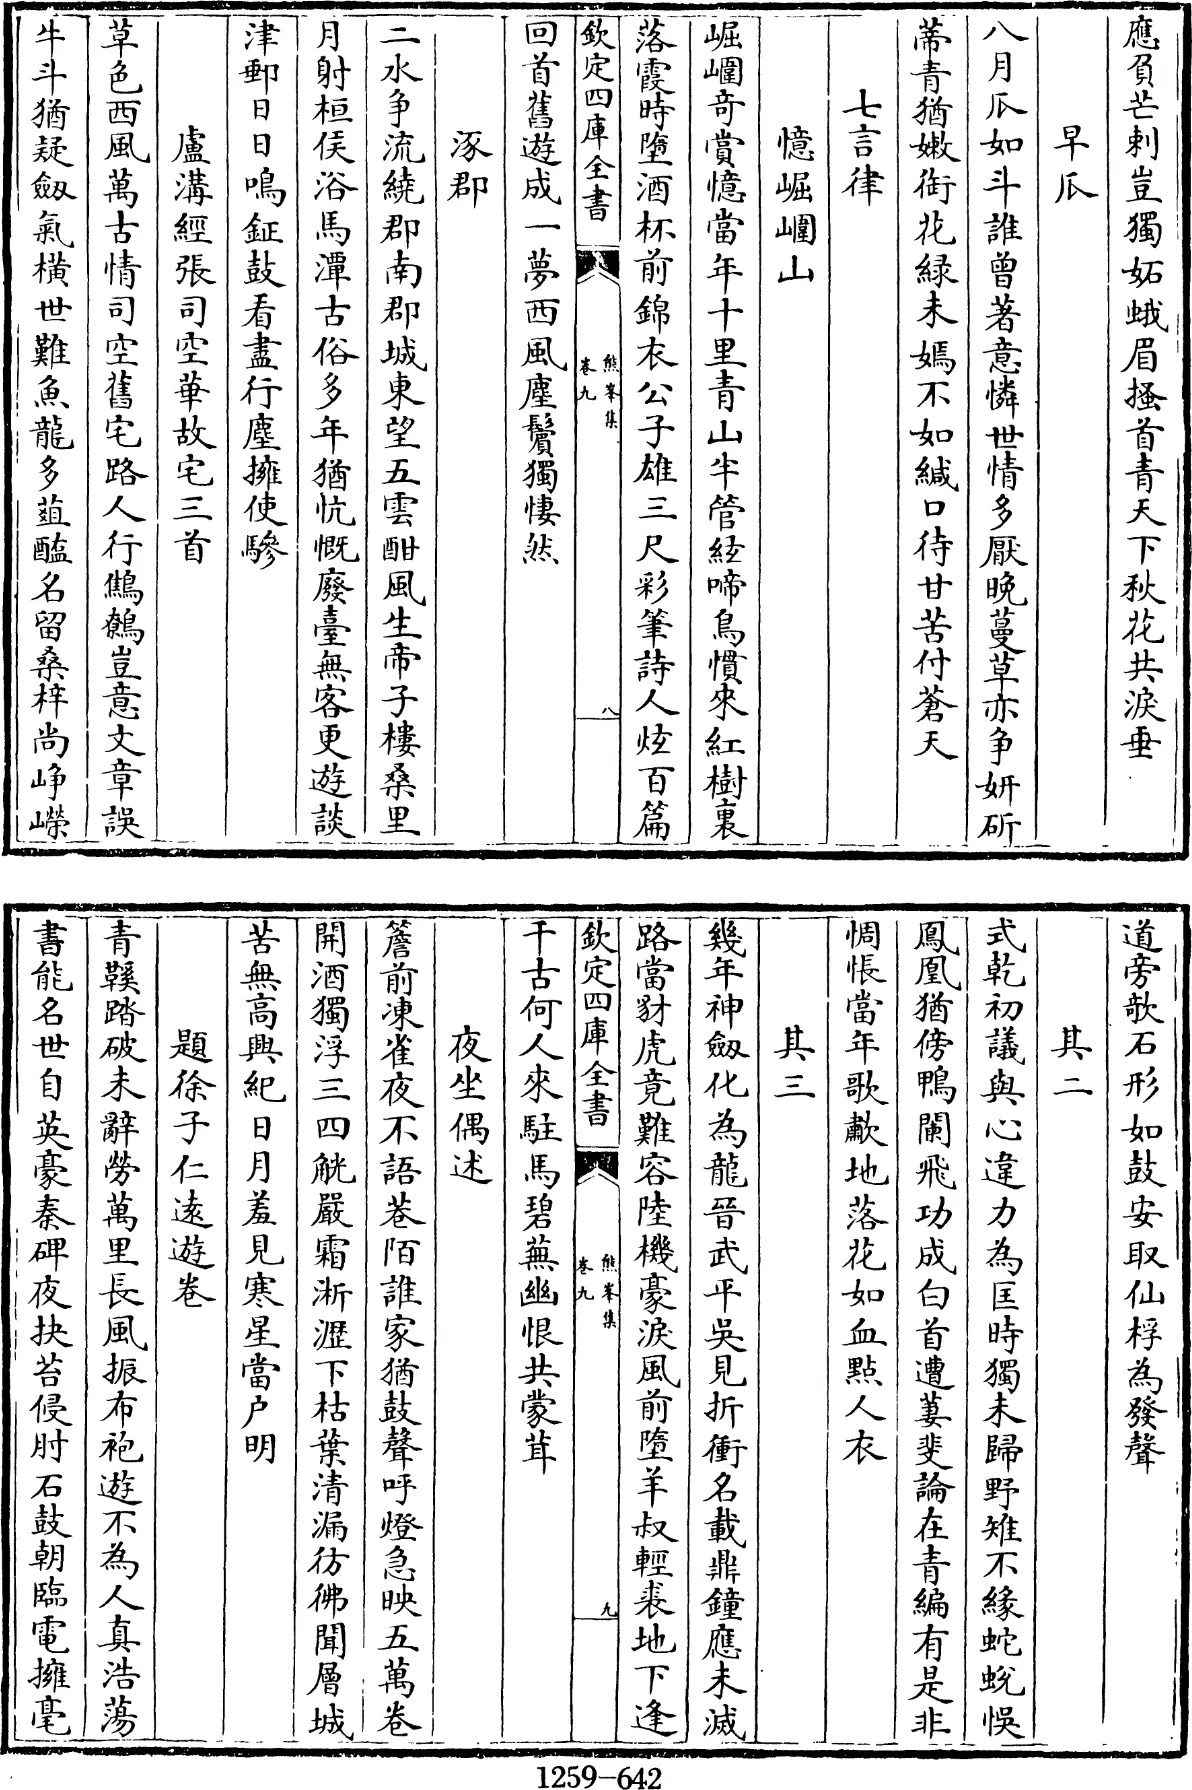 應負芒刺豈獨妬蛾眉搔首青天下秋花共淚垂
早瓜
八月瓜如斗誰曾著意憐世情多厭晚蔓草亦争妍斫
蒂青猶嫩銜花緑未嫣不如緘口待甘苦付蒼天
七言律
憶崛𡹵山
崛𡹵奇賞憶當年十里青山半管絃啼鳥慣來紅樹裏
落霞時墮酒杯前錦衣公子雄三尺彩筆詩人炫百篇
欽定四庫全書
熊峯集
卷九
八
回首舊遊成一夢西風塵鬢獨悽然
涿郡
二水争流繞郡南郡城東望五雲酣風生帝子樓桑里
月射桓侯浴馬潭古俗多年猶忼慨廢臺無客更遊談
津郵日日鳴鉦鼓看盡行塵擁使驂
盧溝經張司空華故宅三首
草色西風萬古情司空舊宅路人行鷦鷯豈意文章誤
牛斗猶疑劔氣橫世難魚龍多葅醢名留桑梓尚崢嶸
道旁欹石形如鼓安取仙桴為發聲
其二
式乾初議與心違力為匡時獨未歸野雉不緣蛇蛻悞
鳳凰猶傍鴨闌飛功成白首遭萋斐論在青編有是非
惆悵當年歌歗地落花如血點人衣
其三
幾年神劔化為龍晉武平吳見折衝名載鼎鐘應未滅
路當豺虎竟難容陸機豪淚風前墮羊叔輕裘地下逢
欽定四庫全書
熊峯集
卷九
九
千古何人來駐馬碧蕪幽恨共蒙茸
夜坐偶述
簷前凍雀夜不語巷陌誰家猶鼓聲呼燈急映五萬卷
開酒獨浮三四觥嚴霜淅瀝下枯葉清漏彷彿聞層城
苦無高興紀日月羞見寒星當户明
題徐子仁遠遊卷
青鞵踏破未辭勞萬里長風振布袍遊不為人真浩蕩
書能名世自英豪秦碑夜抉苔侵肘石鼓朝臨電擁毫
1259-642